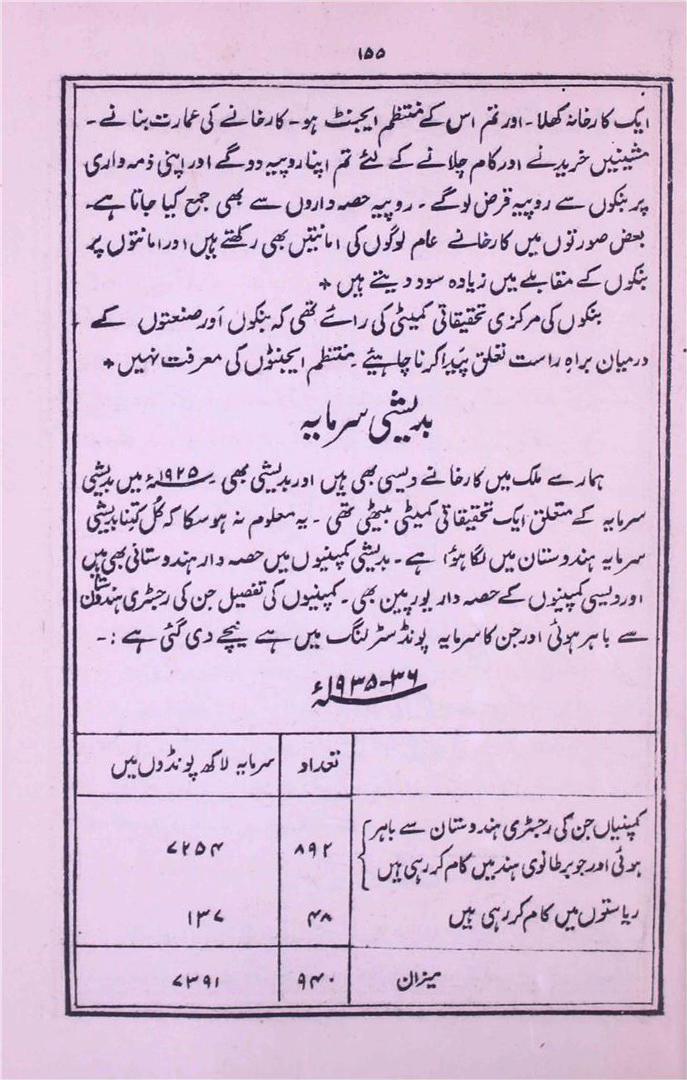 ۱۵۵
ایک کارخانہ کھلا۔ اور تم اس کے منتظم ایجنٹ ہو۔ کارخانے کی عمارت بنانے۔
مشینیں خریدنے اور کام چلانے کے لئے تم اپنا روپیہ دو گے اور اپنی ذمہ واری
پر بنکوں سے روپیہ قرض لو گے۔ روپیہ حصہ داروں سے بھی جمع کیا جاتا ہے۔
بعض صورتوں میں کارخانے عام لوگوں کی امانتیں بھی رکھتے ہیں اور امانتوں پر
بنکوں کے مقابلے میں زیادہ سود دیتے ہیں +
بنکوں کی مرکزی تحقیقاتی کمیٹی کی رائے تھی کہ بنکوں اور صنعتوں کے
درمیان براہِ راست تعلق پیدا کرنا چاہیئے۔ منتظم ایجنٹوں کی معرفت نہیں +
بدیشی سرمایہ
ہمارے ملک میں کارخانے دیسی بھی ہیں اور بدیشی بھی۔ ۱۹۲۵ء میں بدیشی
سرمایہ کے متعلق ایک تحقیقاتی کمیٹی بیٹھی تھی۔ یہ معلوم نہ ہو سکا کہ کُل کتنا بدیشی
سرمایہ ہندوستان میں لگا ہؤا ہے۔ بدیشی کمپنیوں میں حصہ دار ہندوستانی بھی ہیں
اور دیسی کمپنیوں کے حصہ دار یورپین بھی۔ کمپنیوں کی تفصیل جن کی رجسٹری ہندوستان
سے باہر ہوئی اور جن کا سرمایہ پونڈ سٹرلنگ میں ہے نیچے دی گئی ہے :۔
۱۹۳۵-۳۶ء
تعداد سرمایہ لاکھ پونڈوں میں
کمپنیاں جن کی رجسٹری ہندوستان سے باہر
ہوئی اور جو برطانوی ہند میں کام کر رہی ہیں ۸۹۲ ۷۲۵۴
ریاستوں میں کام کر رہی ہیں ۴۸ ۱۳۷
میزان ۹۴۰ ۷۳۹۱